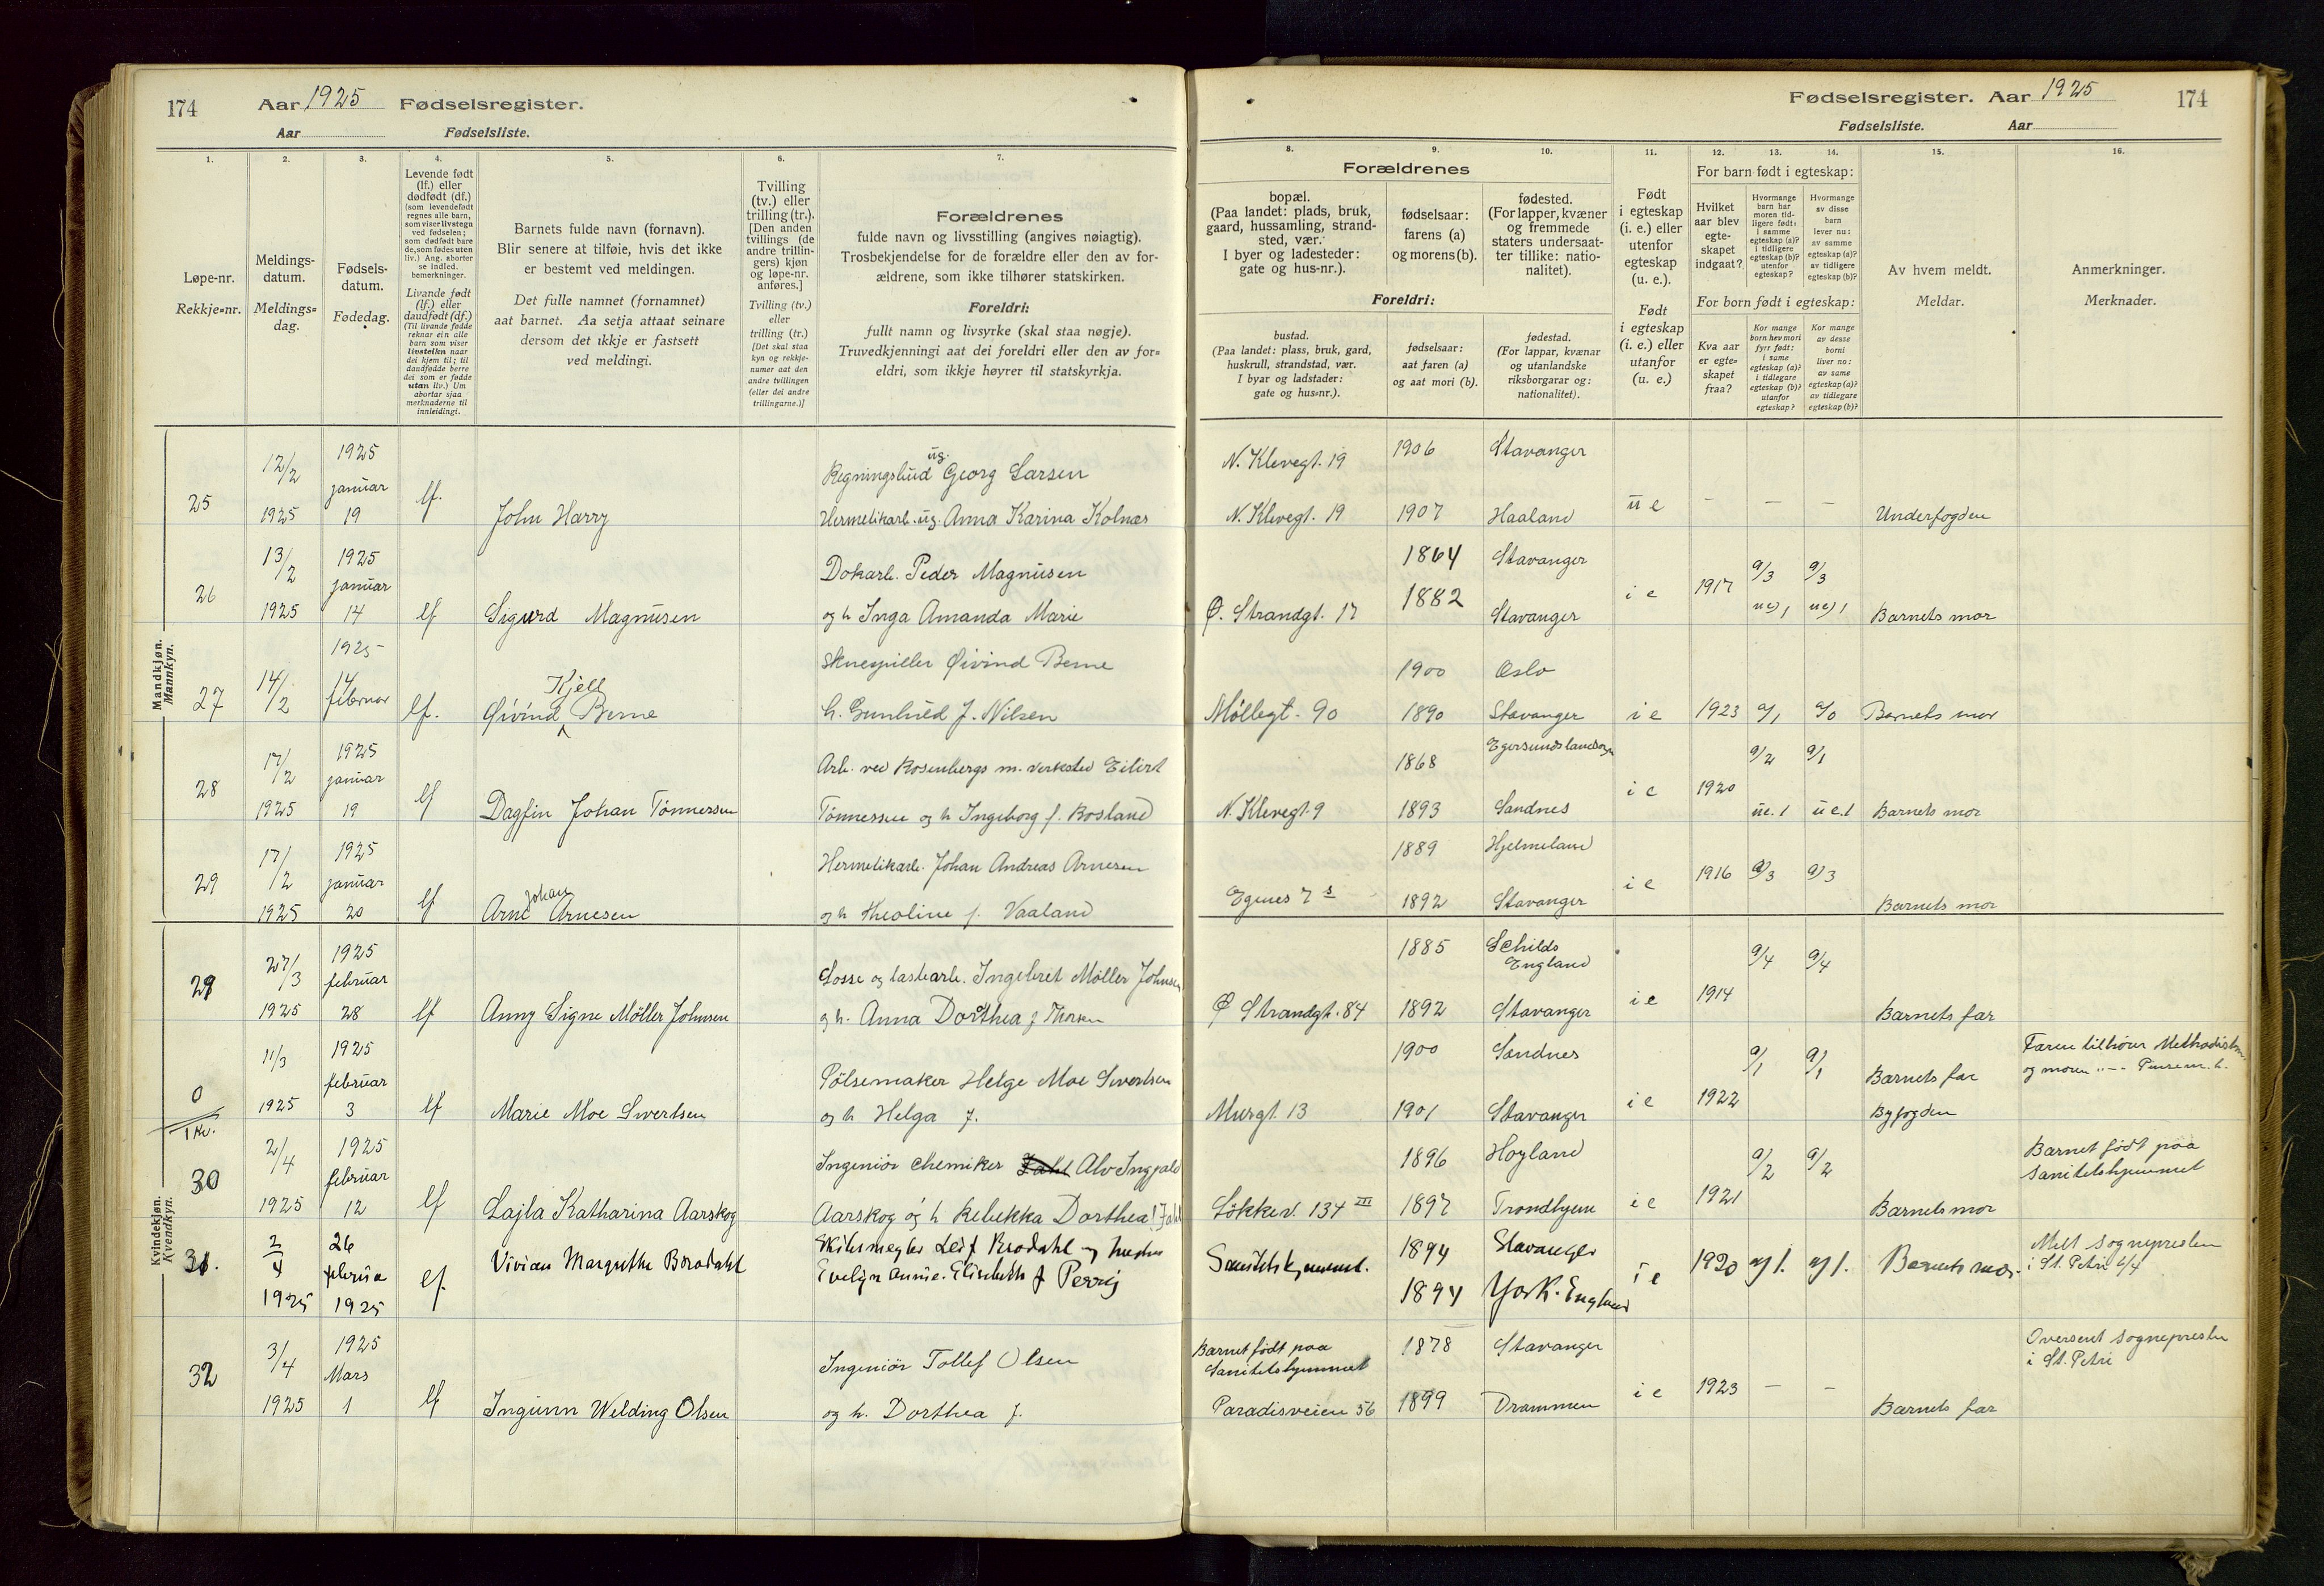 174 Aar 1925 Fødselsregister.
Aar Fødselsliste.
Fødselsregister. Aar 1925 174
Fødselsliste. Aar
1. 2. 3. 4. 5. 6. 7.
Løpe-nr.
Rekkje=nr.
Meldings-
datum.
Meldings=
dag.
Fødsels-
datum.
Fødedag.
Levende født
(lf.) eller
dødfødt (df.)
(som levendefødt
regnes alle barn,
som viser livstegn
ved fødselen;
som dødfødt bare
de, som fødes uten
liv.) Ang. aborter
se indled.
bemerkninger.
Livande født
(lf.) eller
daudfødt (df.)
(Til livande fødde
reknar ein alle
barn som viser
livsteikn naar
dei kjem til; til
daudfødde berre
dei som er fødde
utan liv.) Um
abortar sjaa
merknaderne til
innleidingi.
Barnets fulde navn (fornavn).
Blir senere at tilføie, hvis det ikke
er bestemt ved meldingen.
Det fulle namnet (fornamnet)
aat barnet. Aa setja attaat seinare
dersom det ikkje er fastsett
ved meldingi.
Tvilling
(tv.) eller
trilling (tr.).
[Den anden
tvillings (de
andre trillin-
gers) kjøn
og løpe-nr.
anføres.]
Tvilling (tv.)
eller
trilling (tr.)
[Det skal staa
kyn og rekkje-
numer aat den
andre tvillingen
(eller dei andre
trillingarne.)]
Forældrenes
fulde navn og livsstilling (angives nøiagtig).
Trosbekjendelse for de forældre eller den av for-
ældrene, som ikke tilhører statskirken.
Foreldri:
fullt namn og livsyrke (skal staa nøgje).
Truvedkjenningi aat dei foreldri eller den av for=
eldri, som ikkje høyrer til statskyrkja.
8. 9. 10. 11. 12. 13. 14. 15. 16.
Forældrenes
bopæl.
(Paa landet: plads, bruk,
gaard, hussamling, strand-
sted, vær.
I byer og ladesteder:
gate og hus-nr.).
fødselsaar:
farens (a)
og morens (b).
fødested.
(For lapper, kvæner
og fremmede
staters undersaat-
ter tillike: natio-
nalitet).
Foreldri:
bustad.
(Paa landet: plass, bruk, gard,
huskrull, strandstad, vær.
I byar og ladstader:
gate og hus=nr.).
fødselsaar:
aat faren (a)
og aat mori (b).
fødestad.
(For lappar, kvænar
og utanlandske
riksborgarar og:
nationalitet).
Født
i egteskap
(i. e.) eller
utenfor
egteskap
(u. e.).
Født
i egteskap
(i. e.) eller
utanfor
(u. e.)
For barn født i egteskap:
Hvilket
aar blev
egte-
skapet
indgaat?
Hvormange
barn har
moren tid-
ligere født:
i samme
egteskap (a)?
i tidligere
egteskap (b)?
utenfor
egteskap?
Hvormange
av disse
barn
lever nu:
av samme
egteskap (a)?
av tidligere
egteskap (b)?
For born født i egteskap:
Kva aar
er egte-
skapet
fraa?
Kor mange
born hev mori
fyrr født:
i same
egteskap (a)?
i tidlegare
egteskap (b)?
utanfor
egteskap?
Kor mange
av desse
borni
liver no:
av same
egteskap (a)?
av tidlegare
egteskap (b)?
Av hvem meldt.
Meldar.
Anmerkninger.
Merknader.
Mandkjøn.
Mannkyn.
25 12/2 1925 1925 januar 19 lf. John Harry
Regningsbud ug. Georg Larsen
Hermetikarb. ug. Anna Karina Kolnes
N. Klevegt. 19 1906 Stavanger
N. Klevegt. 19 1907 Haaland ue – – – Underfogden
26 13/2 1925 1925 januar 14 lf Sigurd Magnusen
Dokarb. Peder Magnusen
og h Inga Amanda Marie
1864 Stavanger
Ø. Strandgt. 17 1882 Stavanger ie 1917 a/3 ue) 1 a/3 ue) 1 Barnets mor
27 14/2 1925 14 februar lf. Øivind Kjell Berne
Skuespiller Øivind Berne
h. Gunhild f. Nilsen
1900 Oslo
Møllegt. 90 1890 Stavanger ie 1923 a/1 a/0 Barnets mor
28 17/2 1925 1925 januar 19 lf Dagfin Johan Tönnessen
Arb. ved Rosenbergs m. verksted Eilert
Tönnessen og h Ingeborg f. Rosland
1868 Egersunds landsogn
N. Klevegt. 9 1893 Sandnes ie 1920 a/2 ue. 1 a/1 ue. 1 Barnets mor
29 17/2 1925 1925 januar 20 lf Arne Johan Arnesen
Hermetikarb. Johan Andreas Arnesen
og h Theoline f. Vaaland
1889 Hjelmeland
Egenes 7 s 1892 Stavanger ie 1916 a/3 a/3 Barnets mor
Kvindekjøn.
Kvendkyn.
29 27/3 1925 1925 februar 28 lf Anny Signe Möller Johnsen
Losse og lastearb. Ingebret Möller Johnsen
og h. Anna Dorthea f Thorsen
1885 Schilds England
Ø Strandgt. 84 1892 Stavanger ie 1914 a/4 a/4 Barnets far
0/1 Kv. 11/3 1925 1925 februar 3 lf Marie Moe Sivertsen
Pölsemaker Helge Moe Sivertsen
og h Helga f.
1900 Sandnes
Murgt. 13 1901 Stavanger ie 1922 a/1 a/1 Barnets far
Byfogden
Faren tilhører Methodistm.
og moren
30 2/4 1925 1925 februar 12 lf Lajla Katharina Aarskog
Ingeniör chemiker Alv Ingvald
Aarskog og h Rebekka Dorthea f Jahl
1896 Høyland
Lökkev. 134 III 1897 Trondhjem ie 1921 a/2 a/2 Barnets mor
Barnet født paa
Sanitetshjemmet
31. 2/4 1925 26 februar 1925 lf. Vivian Margrethe Brodahl
Skibsmegler Leif Brodahl og hustru
Evelyn Annie Elisabeth f Perrij
Sanitetshjemmet. 1894 Stavanger
1894 York. England ie 1920 a/1. a/1. Barnets mor.
Melt Sognepresten
i St. Petri 6/4
32 3/4 1925 1925 Mars 1 lf Ingunn Welding Olsen
Ingeniör Tollef Olsen
og h. Dorthea f.
Barnet født paa
Sanitetshjemmet
1878 Stavanger
Paradisveien 56 1899 Drammen ie 1923 – – Barnets far
Oversent Sognepresten
i St. Petri